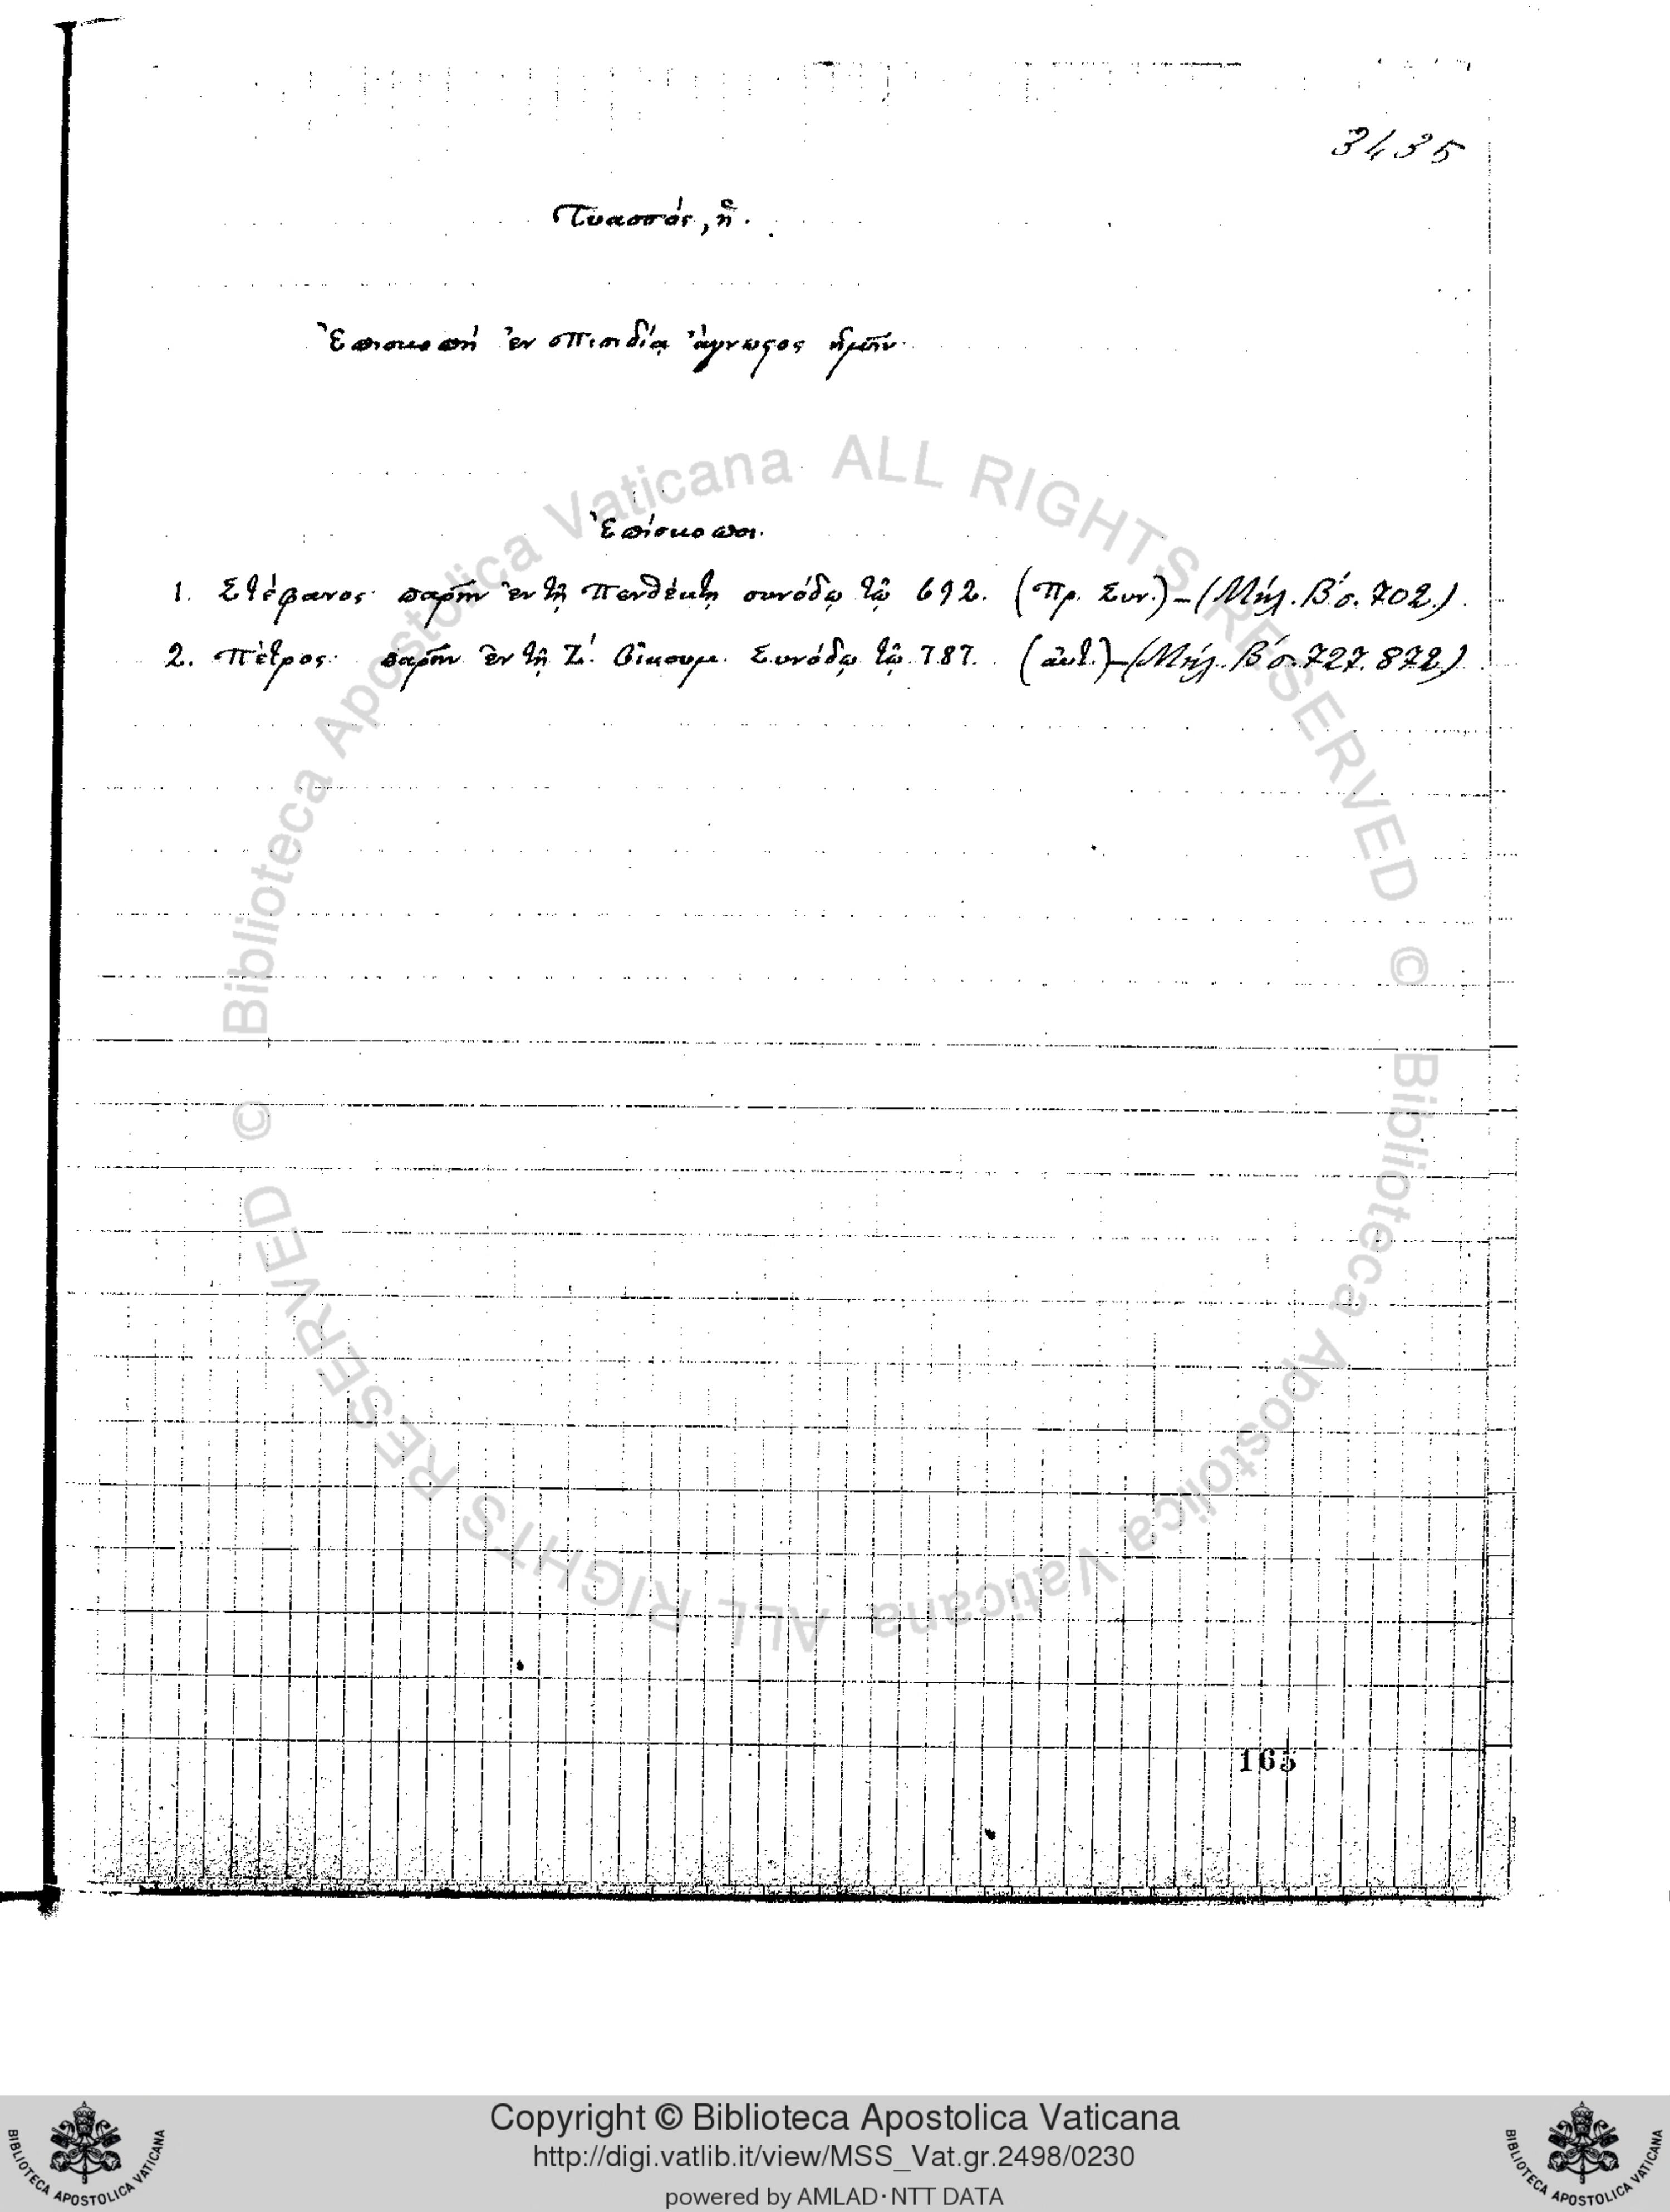 3435
Τυασσός, ἡ.
Ἐπισκοπή ἐν Πισιδίᾳ ἄγνωστος ἡμῖν.
Ἐπίσκοποι.
1. Στέφανος παρῆν ἐν τῇ Πενθέκτῃ συνόδῳ τῷ 692. (Πρ. Συν.) – (Μήλ. Β΄ σ. 702.)
2. Πέτρος παρῆν ἐν τῇ Ζ΄. Οἰκουμ. Συνόδῳ τῷ 787. (αὐτ.) – (Μήλ. Β΄ σ. 727. 872)
165
© Biblioteca Apostolica Vaticana ALL RIGHTS RESERVED
© Biblioteca Apostolica Vaticana ALL RIGHTS RESERVED
Copyright © Biblioteca Apostolica Vaticana
http://digi.vatlib.it/view/MSS_Vat.gr.2498/0230
powered by AMLAD·NTT DATA
BIBLIOTECA APOSTOLICA VATICANA
BIBLIOTECA APOSTOLICA VATICANA